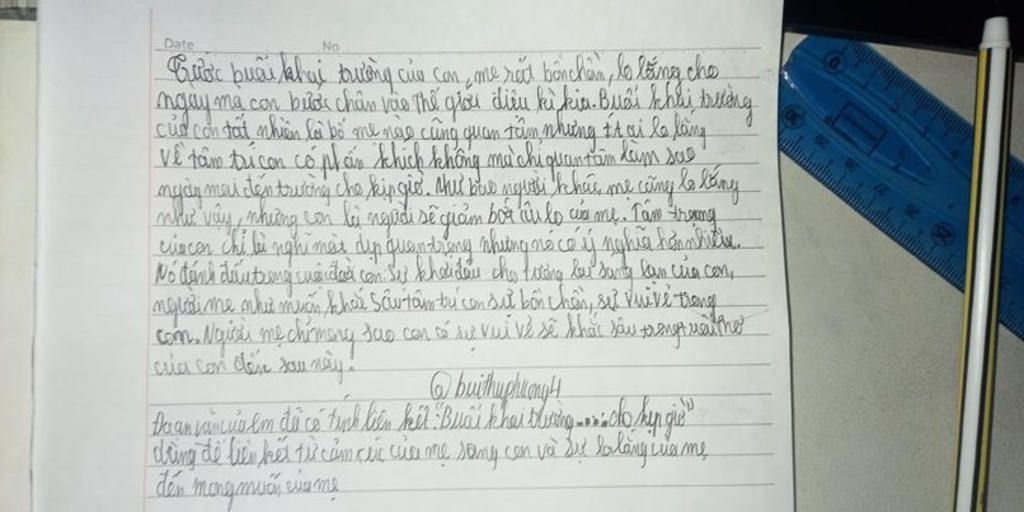 Date No
Trước buổi khai trường của con, mẹ rất bồn chồn, lo lắng cho
ngày mà con bước chân vào thế giới diệu kì kia. Buổi khai trường
của con tất nhiên là bố mẹ nào cũng quan tâm nhưng ít ai lo lắng
về tâm trí con có phấn khích không mà chỉ quan tâm làm sao
ngày mai đến trường cho kịp giờ. Như bao người khác, mẹ cũng lo lắng
như vậy, nhưng con là người sẽ giảm bớt âu lo của mẹ. Tâm trạng
của con chỉ là nghỉ một dịp quan trọng nhưng nó có ý nghĩa hơn nhiều.
Nó đánh dấu trong cuộc đời con. Sự khởi đầu cho tương lai sáng lạn của con,
người mẹ như muốn khắc sâu tâm trí con sự bồn chồn, sự vui vẻ trong
con. Người mẹ chỉ mong sao con có sự vui vẻ sẽ khắc sâu trong tuổi thơ
của con đến sau này.
@buithuphuong4
Đoạn văn của em đã có tính liên kết: "Buổi khai trường.....cho kịp giờ"
dùng để liên kết từ cảm xúc của mẹ sang con và sự lo lắng của mẹ
đến mong muốn của mẹ